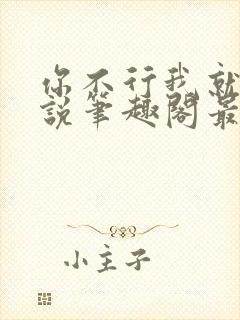 你不行我就
說筆趣閣最
小主子